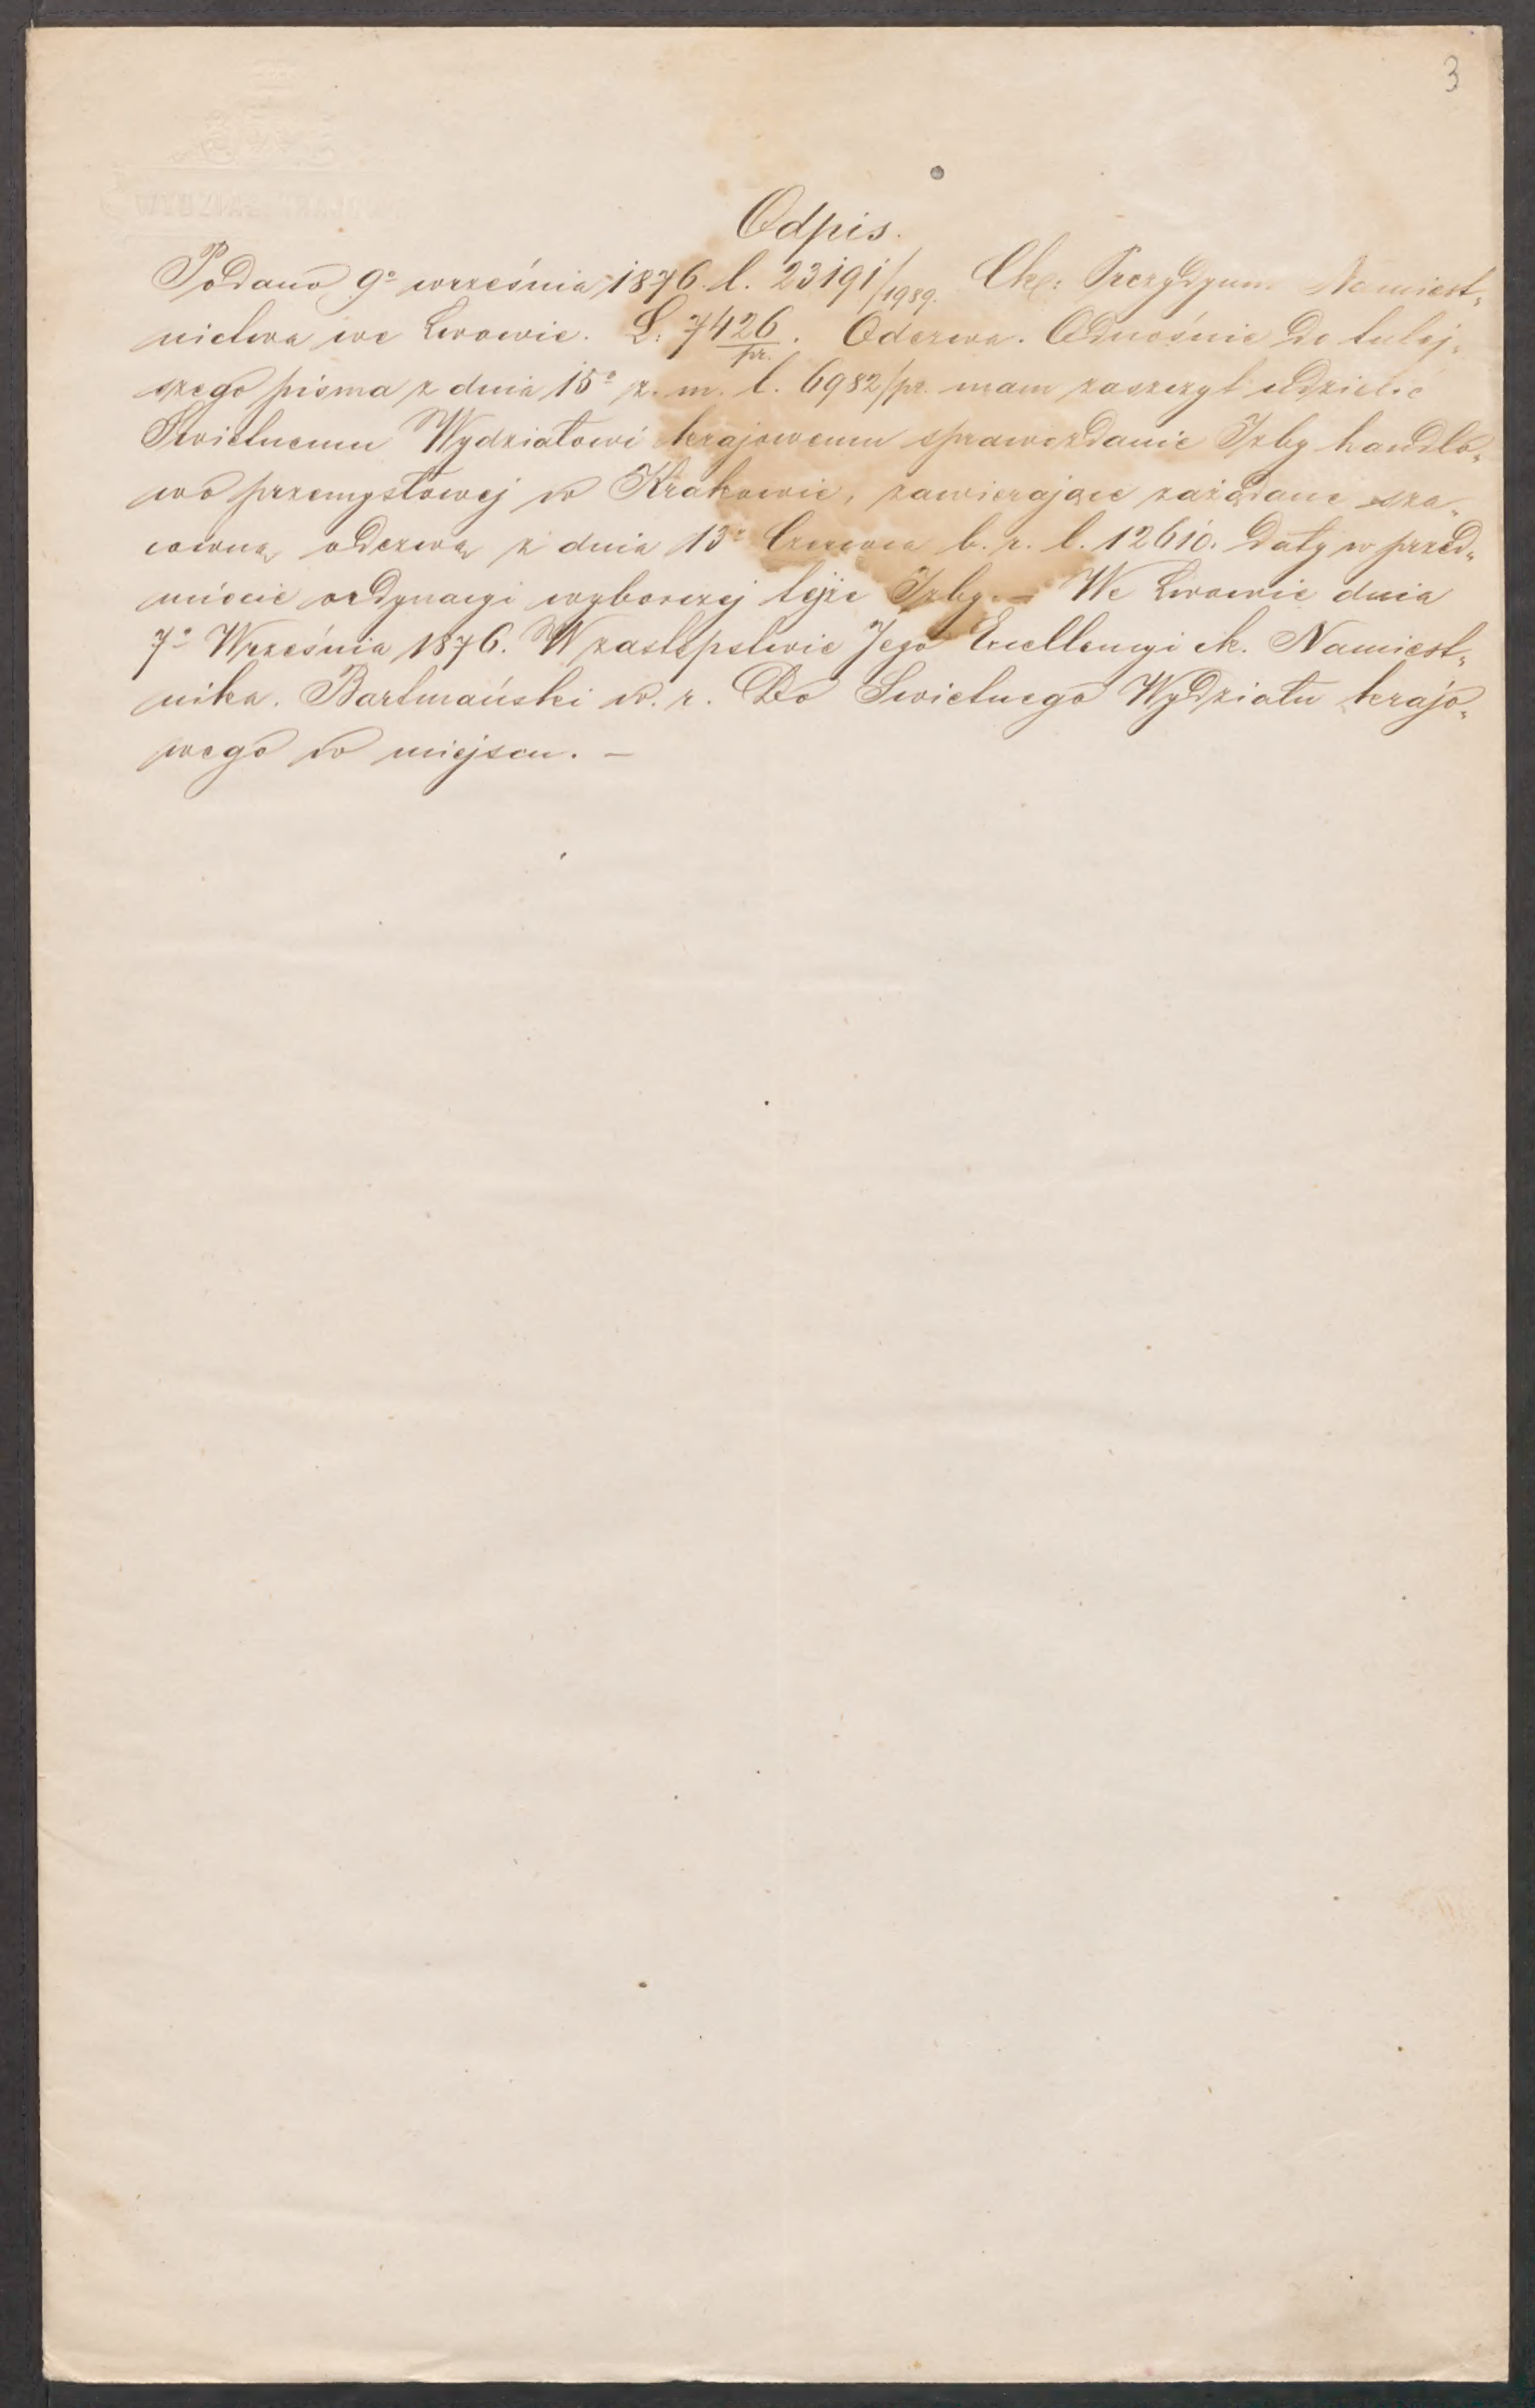 3
Odpis.
Podano 9º września 1876. l. 23191/1989. Ck: Prezydyum Namiest„
nictwa we Lwowie. L: 7426/pr. Odezwa. Odnośnie do tutej„
szego pisma z dnia 15º z. m. l. 6982/pr. mam zaszczyt udzielić
Swietnemu Wydziałowi krajowemu sprawozdanie Izby handlo„
wo przemysłowej w Krakowie, zawierające zażądane sza„
cowną odezwą z dnia 13º Czerwca b. r. l. 12610. daty w przed„
miocie ordynacyi wyborczej tejże Izby. – We Lwowie dnia
7º Września 1876. W zastępstwie Jego Excellencyi ck. Namiest„
nika. Bartmański w. r. Do Swietnego Wydziału krajo„
wego w miejscu. –